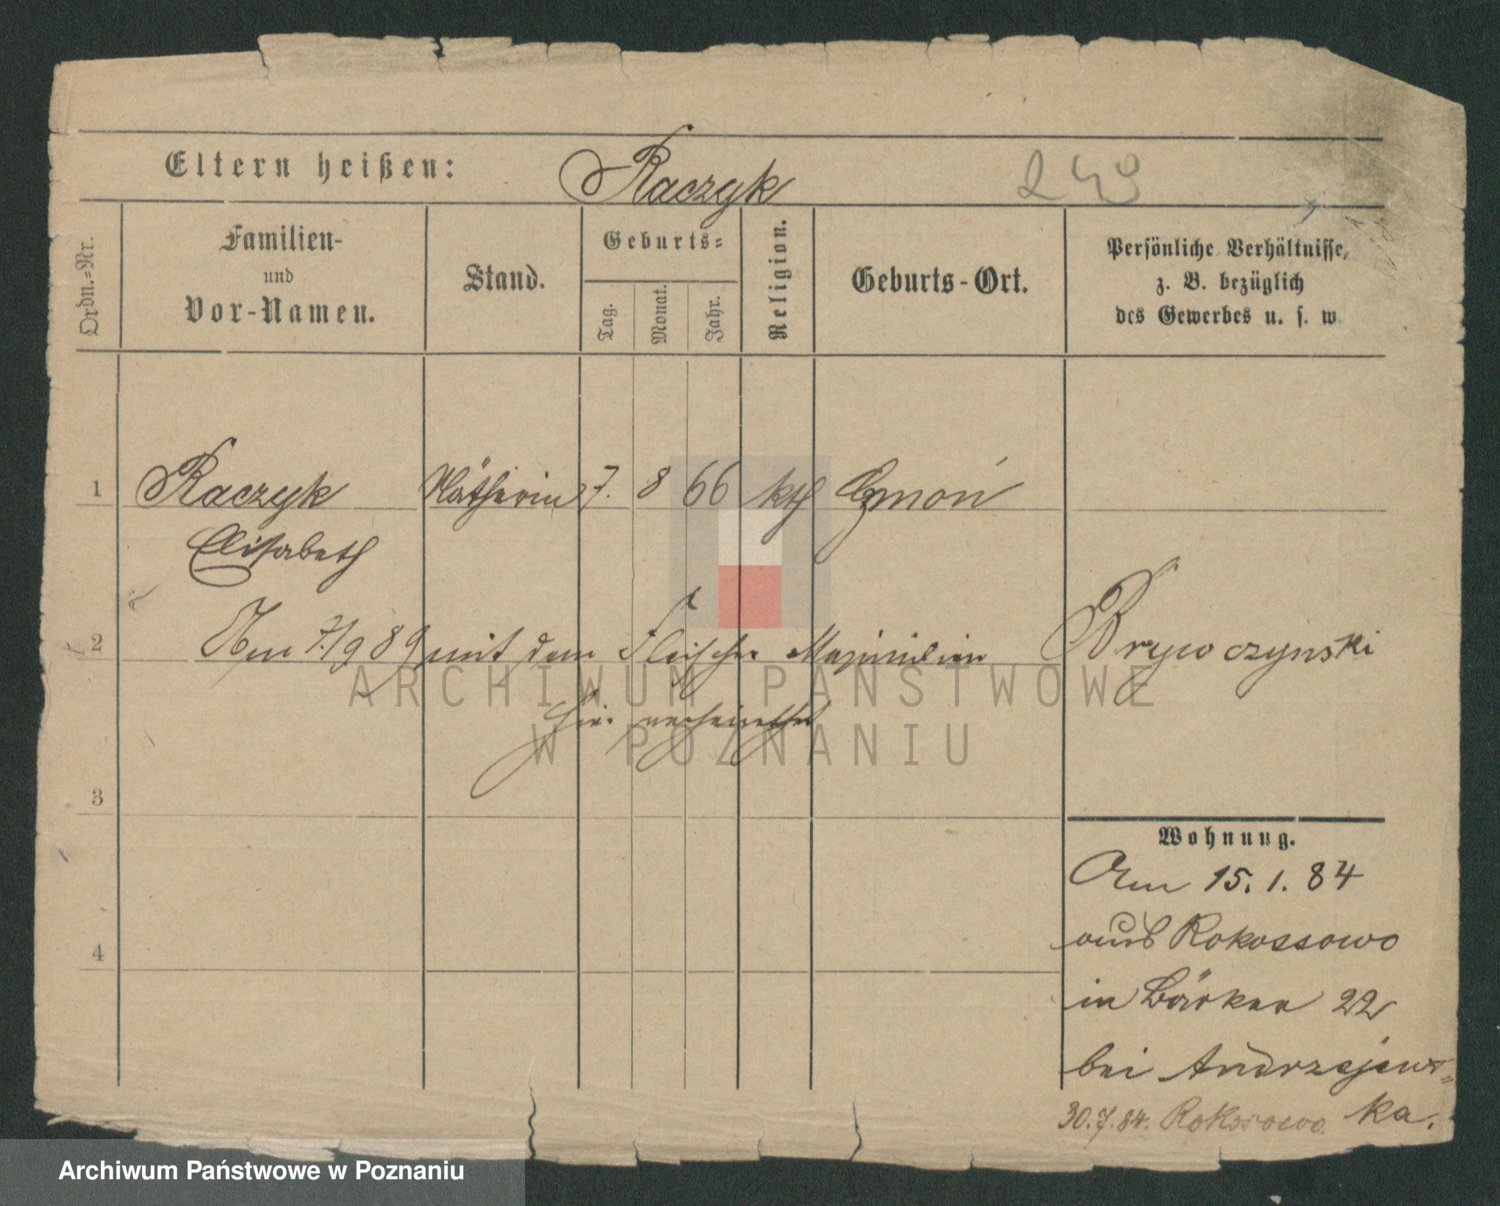 Eltern heißen: Raczyk 249
Ordn.=Nr.
Familien-
und
Vor-Namen.
Stand.
Geburts=
Tag.
Monat.
Jahr.
Religion.
Geburts-Ort.
Persönliche Verhältnisse,
z. B. bezüglich
des Gewerbes u. s. w.
1 Raczyk Nätherin 7. 8 66 kth Czmoń
Elisabeth
2 Am 7/9 89 mit dem Fleischer Maximilian Brywczynski
hier verheirathet
3
4
Wohnung.
Am 15. 1. 84
aus Rokossowo
in Bäcker 22
bei Andrzejews=
ka.
30.7.84. Rokossowo
ARCHIWUM PAŃSTWOWE
W POZNANIU
Archiwum Państwowe w Poznaniu